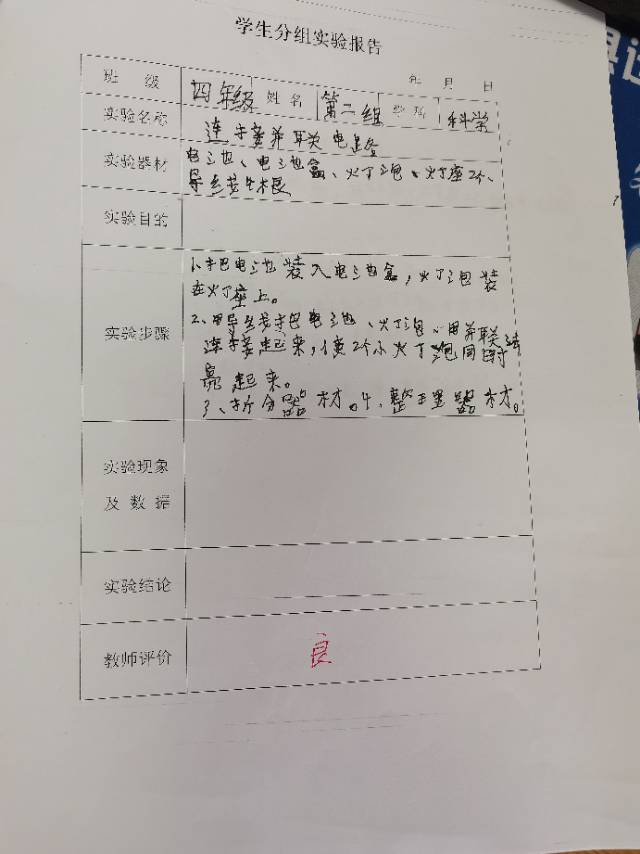 学生分组实验报告
年 月 日
班 级 四年级 姓名 第二组 学科 科学
实验名称 连接并联电路
实验器材 电池、电池盒、火丁泡、火丁座2个、
导线若干根
实验目的
1、把电池装入电池盒,火丁泡装
在火丁座上。
实验步骤
2、用导线把电池、火丁泡、用并联法
连接起来,使2个小火丁泡同时
亮起来。
3、拆分器材。4、整理器材。
实验现象
及 数 据
实验结论
教师评价 良